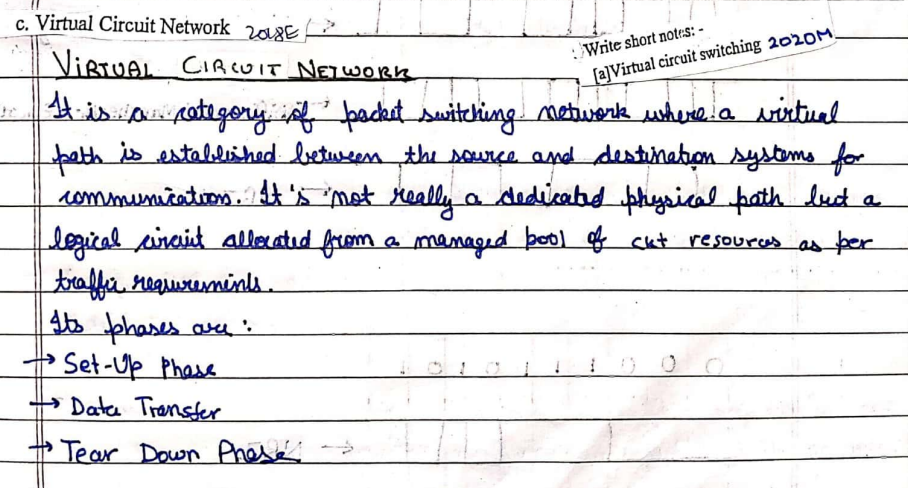 c. Virtual Circuit Network 2018E
Write short notes: -
[a]Virtual circuit switching 2020M
VIRTUAL CIRCUIT NETWORK
It is a category of packet switching network where a virtual
path is established between the source and destination systems for
communication. It's not really a dedicated physical path but a
logical circuit allocated from a managed pool of ckt resources as per
traffic requirements.
Its phases are :
→ Set-Up Phase
1 0 1 0 1 1 1 0 0 0
→ Data Transfer
→ Tear Down Phase